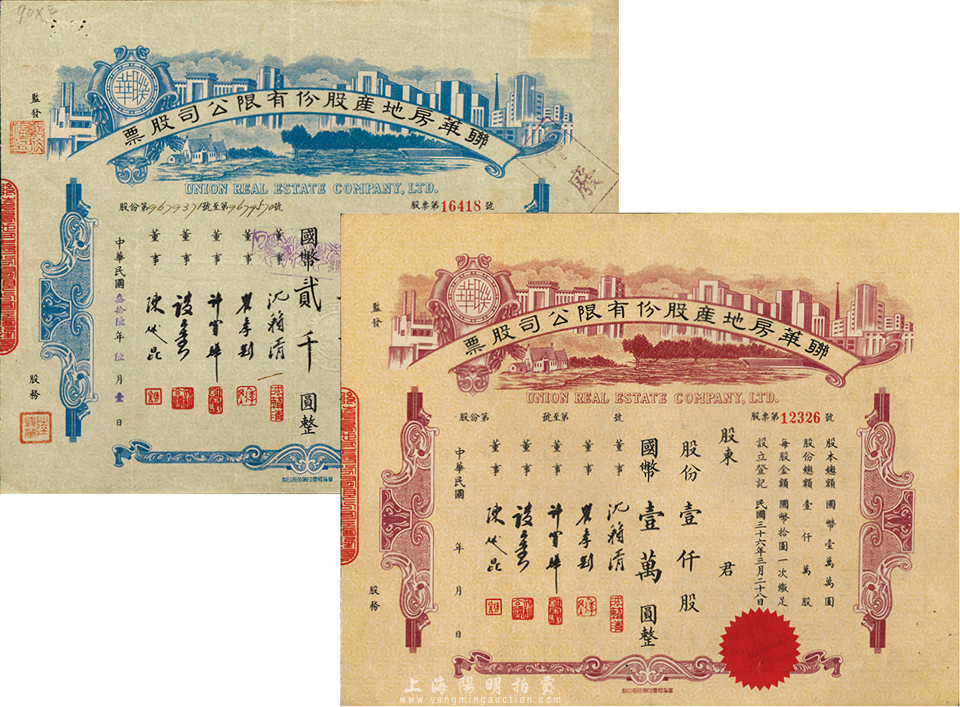 監發
聯華
聯華房地產股份有限公司股票
UNION REAL ESTATE COMPANY, LTD.
股份第9679371號至第9679570號
股票第16418號
廢
國幣貳千圓整
董事
董事
董事
董事
董事
中華民國叁拾陸年陸月壹日
股務
監發
聯華
聯華房地產股份有限公司股票
UNION REAL ESTATE COMPANY, LTD.
股份第 號至第 號
股票第12326號
股本總額國幣壹萬萬圓
股份總額壹仟萬股
每股金額國幣拾圓一次繳足
設立登記民國三十六年三月二十八日
股東 君
股份壹仟股
國幣壹萬圓整
董事
董事
董事
董事
董事
中華民國 年 月 日
股務
上海陽明拍賣
www.yangmingauction.com